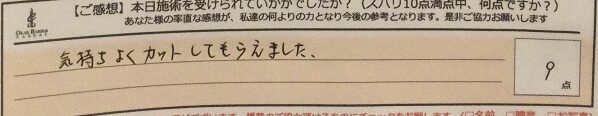 【ご感想】本日施術を受けられていかがでしたか？（ズバリ10点満点中、何点ですか？）
あなた様の率直な感想が、私達の何よりの力となり今後の参考となります。是非ご協力お願いします
気持ちよくカットしてもらえました、
9
点